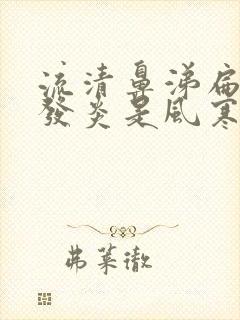 流清鼻涕扁
發炎是風寒
弗萊徹